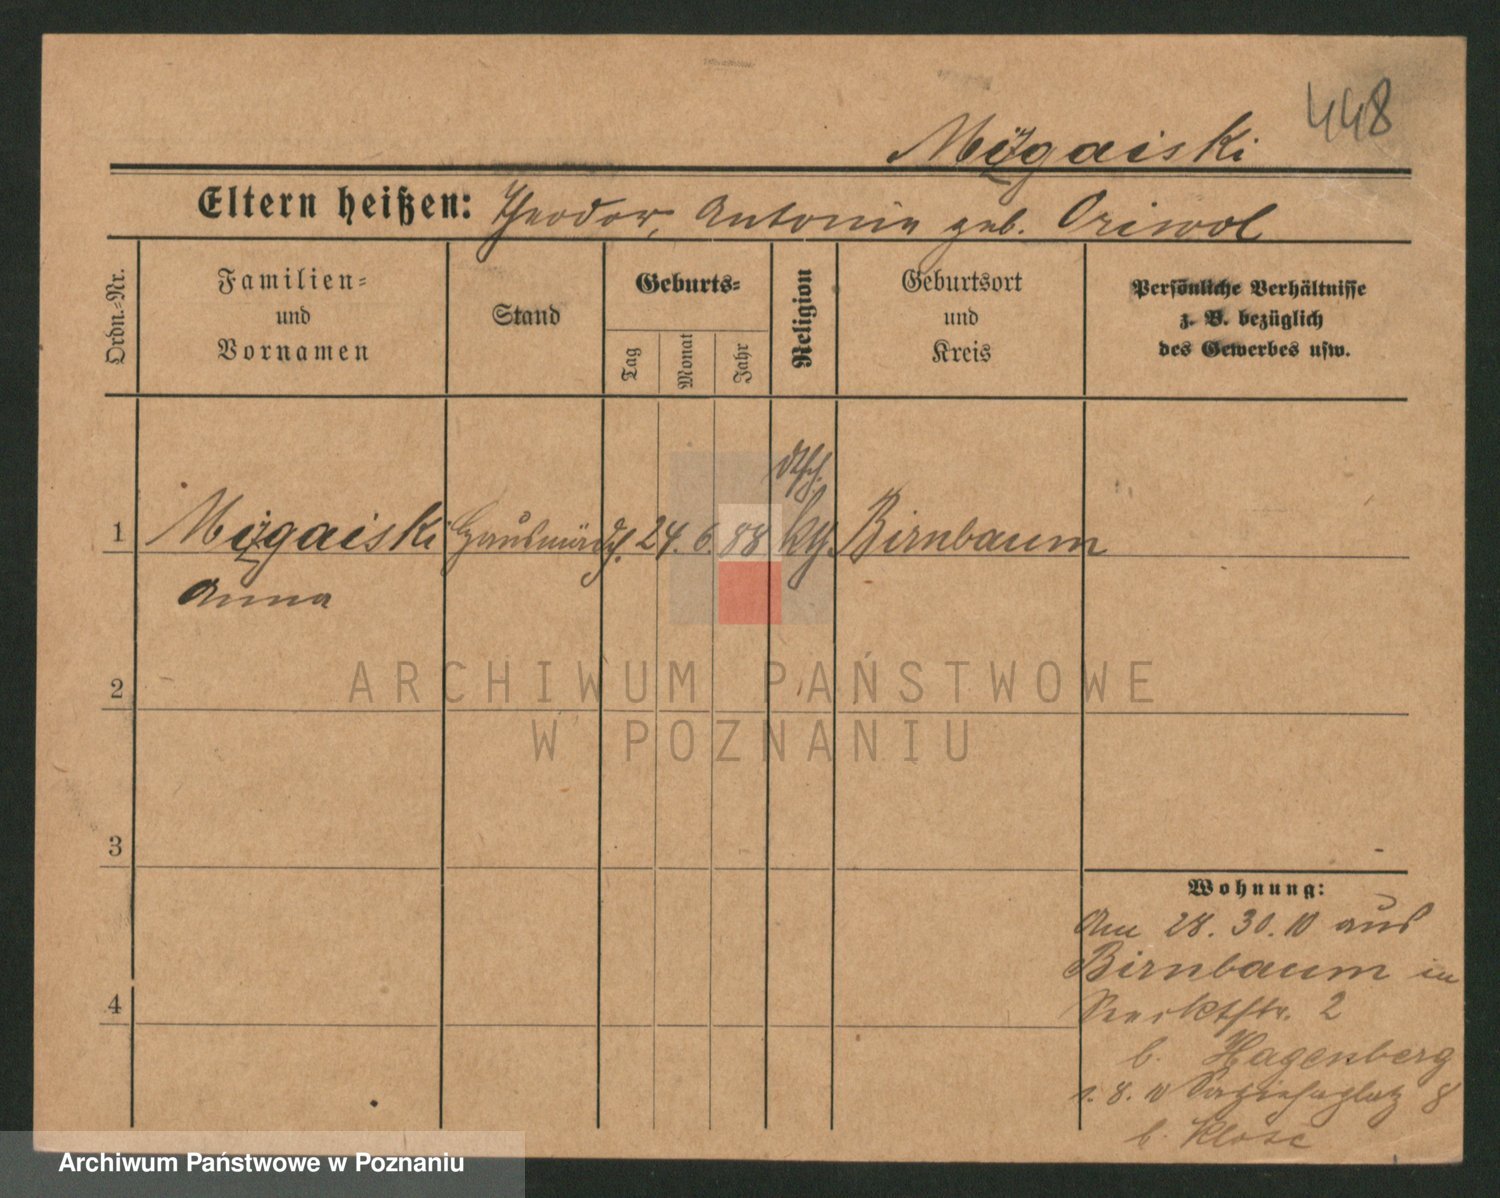 448
Mizgaiski
Eltern heißen: Theodor, Antonie geb. Oriwol
Ordn.-Nr.
Familien-
und
Vornamen
Stand
Geburts-
Tag
Monat
Jahr
Religion
Geburtsort
und
Kreis
Persönliche Verhältnisse
z. B. bezüglich
des Gewerbes usw.
dtsch.
1 Mizgaiski Hausmädch. 24. 6. 88 kth. Birnbaum
Anna
2
3
4
Wohnung:
Am 28. 30. 10 aus
Birnbaum in
2
b. Hagenberg
1. 8. 10 Sapiehaplatz 8
b. Klose
ARCHIWUM PAŃSTWOWE
W POZNANIU
Archiwum Państwowe w Poznaniu